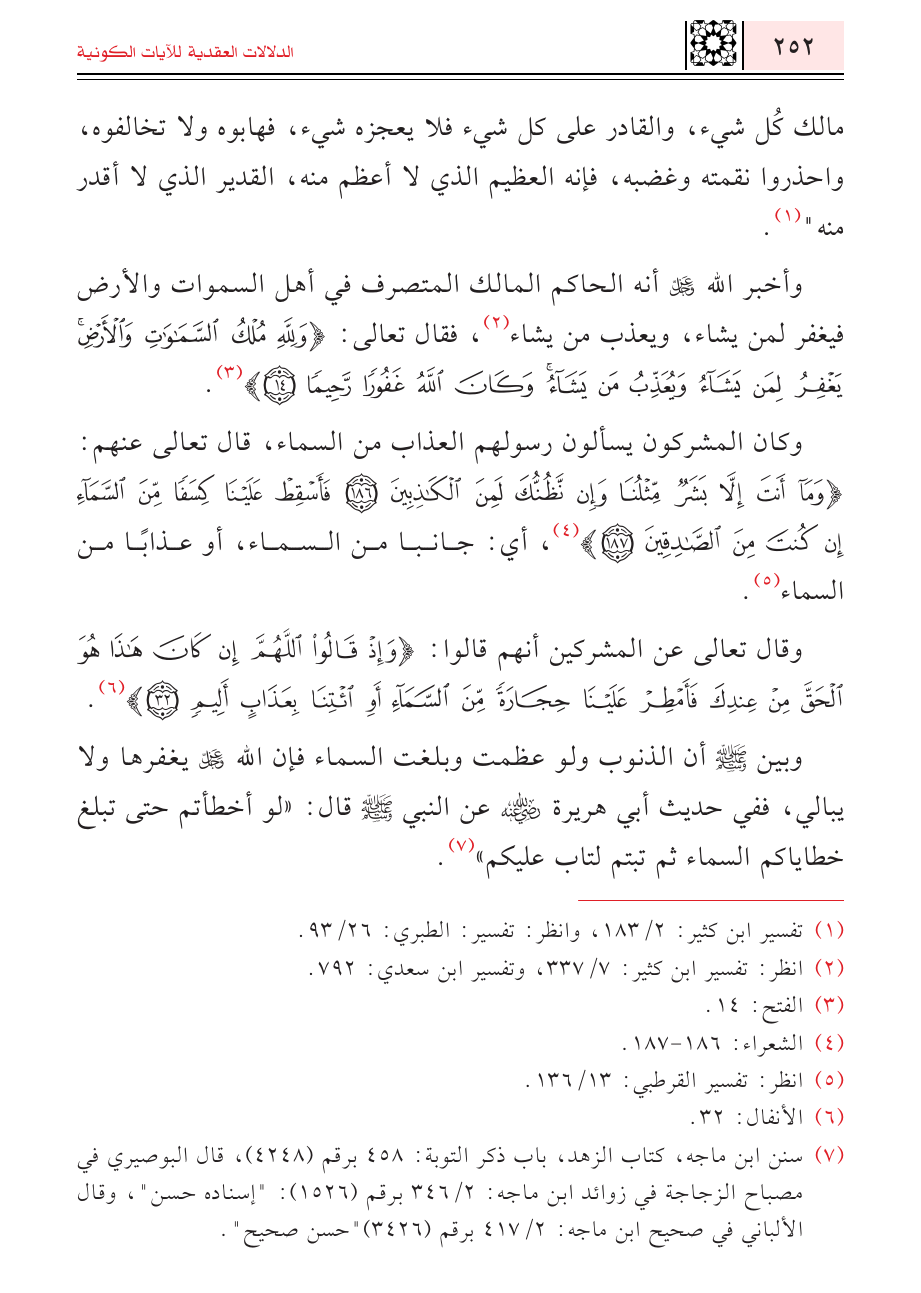 ٢٥٢
الدلالات العقدية للآيات الكونية
مالك كُل شيء، والقادر على كل شيء فلا يعجزه شيء، فهابوه ولا تخالفوه،
واحذروا نقمته وغضبه، فإنه العظيم الذي لا أعظم منه، القدير الذي لا أقدر
منه"(١).
وأخبر الله ﷻ أنه الحاكم المالك المتصرف في أهل السموات والأرض
فيغفر لمن يشاء، ويعذب من يشاء(٢)، فقال تعالى: ﴿وَلِلَّهِ مُلْكُ ٱلسَّمَٰوَٰتِ وَٱلْأَرْضِۚ
يَغْفِرُ لِمَن يَشَآءُ وَيُعَذِّبُ مَن يَشَآءُۚ وَكَانَ ٱللَّهُ غَفُورًا رَّحِيمًا ١٤﴾(٣).
وكان المشركون يسألون رسولهم العذاب من السماء، قال تعالى عنهم:
﴿وَمَآ أَنتَ إِلَّا بَشَرٌ مِّثْلُنَا وَإِن نَّظُنُّكَ لَمِنَ ٱلْكَٰذِبِينَ ١٨٦ فَأَسْقِطْ عَلَيْنَا كِسَفًا مِّنَ ٱلسَّمَآءِ
إِن كُنتَ مِنَ ٱلصَّٰدِقِينَ ١٨٧﴾(٤)، أي: جانبا من السماء، أو عذابًا من
السماء(٥).
وقال تعالى عن المشركين أنهم قالوا: ﴿وَإِذْ قَالُوا۟ ٱللَّهُمَّ إِن كَانَ هَٰذَا هُوَ
ٱلْحَقَّ مِنْ عِندِكَ فَأَمْطِرْ عَلَيْنَا حِجَارَةً مِّنَ ٱلسَّمَآءِ أَوِ ٱئْتِنَا بِعَذَابٍ أَلِيمٍ ٣٢﴾(٦).
وبين ﷺ أن الذنوب ولو عظمت وبلغت السماء فإن الله ﷻ يغفرها ولا
يبالي، ففي حديث أبي هريرة رضي الله عنه عن النبي ﷺ قال: «لو أخطأتم حتى تبلغ
خطاياكم السماء ثم تبتم لتاب عليكم»(٧).
(١) تفسير ابن كثير: ٢/ ١٨٣، وانظر: تفسير: الطبري: ٢٦/ ٩٣.
(٢) انظر: تفسير ابن كثير: ٧/ ٣٣٧، وتفسير ابن سعدي: ٧٩٢.
(٣) الفتح: ١٤.
(٤) الشعراء: ١٨٦-١٨٧.
(٥) انظر: تفسير القرطبي: ١٣/ ١٣٦.
(٦) الأنفال: ٣٢.
(٧) سنن ابن ماجه، كتاب الزهد، باب ذكر التوبة: ٤٥٨ برقم (٤٢٤٨)، قال البوصيري في
مصباح الزجاجة في زوائد ابن ماجه: ٢/ ٣٤٦ برقم (١٥٢٦): "إسناده حسن"، وقال
الألباني في صحيح ابن ماجه: ٢/ ٤١٧ برقم (٣٤٢٦) "حسن صحيح".